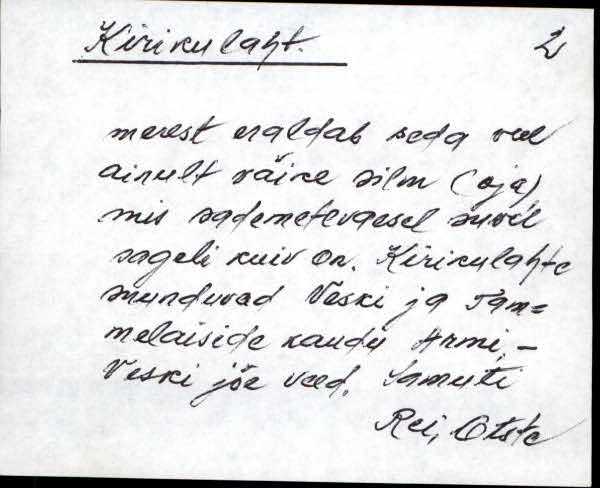 Kirikulaht. 2
merest eraldab seda veel
ainult väike silm (oja)
mis sademetevaesel suvel
sageli kuiv on. Kirikulahte
suunduvad Veski ja Tam=
melaiside kaudu Armi,-
Veski jõe veed. Samuti
Rei, Otste